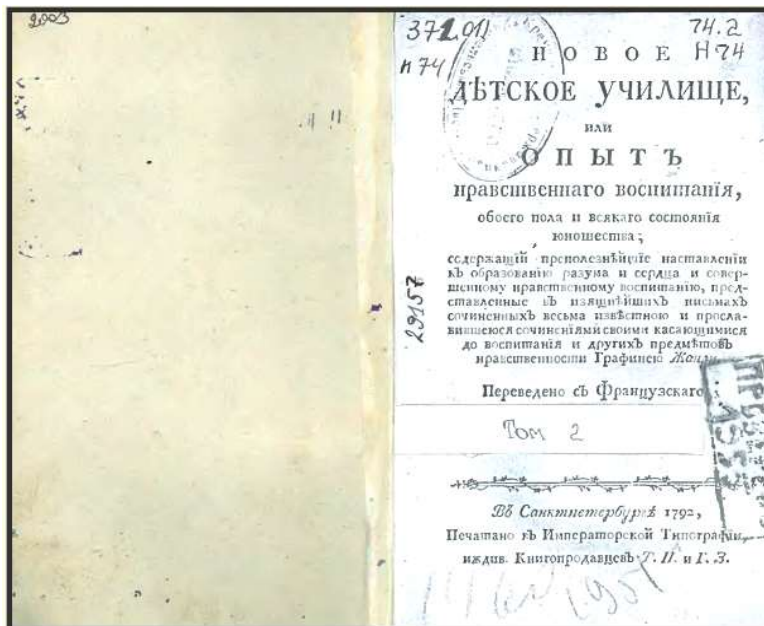 2003
371.011
74.2
Н74
Н74
НОВОЕ
ДѢТСКОЕ УЧИЛИЩЕ,
или
ОПЫТЪ
нравственнаго воспитанія,
обоего пола и всякаго состоянія
юношества;
содержащій преполезнѣйшіе наставленіи
къ образованію разума и сердца и совер-
шенному нравственному воспитанію, пред-
ставленные въ изящнѣйшихъ письмахъ
сочиненныхъ весьма извѣстною и просла-
вившеюся сочиненіями своими касающимися
до воспитанія и другихъ предмѣтовъ
нравственности Графинею
29157
Переведено съ Французскаго
Том 2
Въ Санктпетербургѣ 1792,
Печатано въ Императорской Типографіи,
иждив. Книгопродавцевъ Т. П. и Г. З.